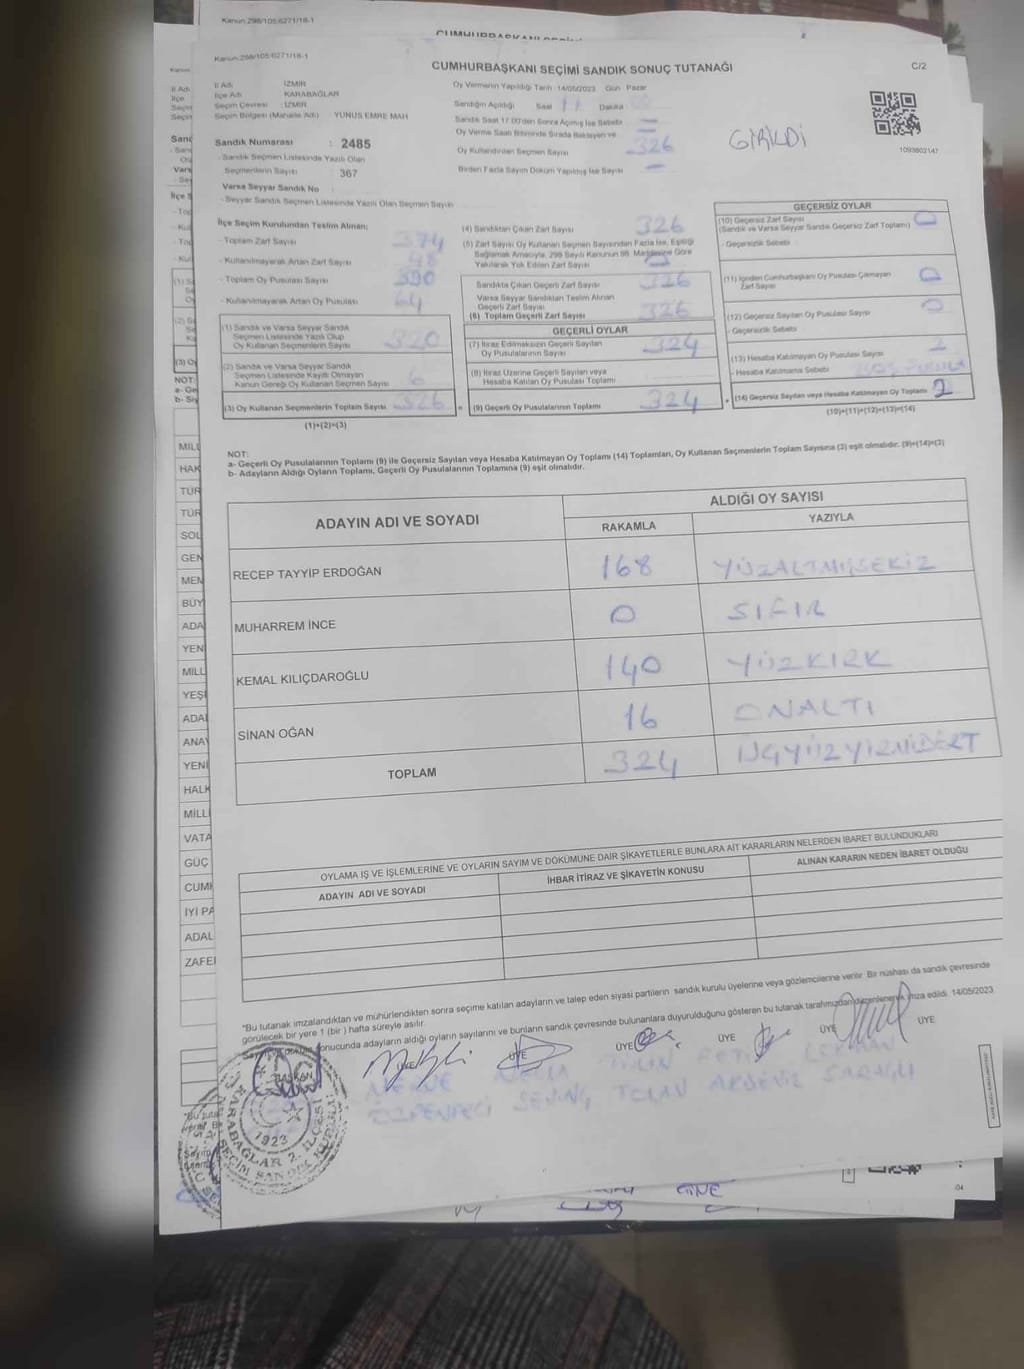 Kanun.298/105:6271/18-1
Kanun.298/105:6271/18-1
CUMHURBAŞKANI SEÇİMİ SANDIK SONUÇ TUTANAĞI
C/2
İl Adı : İZMİR
İlçe Adı : KARABAĞLAR
Seçim Çevresi : İZMİR
Seçim Bölgesi (Mahalle Adı) YUNUS EMRE MAH
Oy Vermenin Yapıldığı Tarih :14/05/2023 Gün Pazar
Sandığın Açıldığı Saat 17 Dakika
Sandık Saat 17.00'den Sonra Açılmış İse Sebebi
Oy Verme Saati Bitiminde Sırada Bekleyen ve
Oy Kullandırılan Seçmen Sayısı 326
Birden Fazla Sayım Döküm Yapılmış İse Sayısı
GİRİLDİ
1093802147
Sandık Numarası : 2485
- Sandık Seçmen Listesinde Yazılı Olan
Seçmenlerin Sayısı : 367
Varsa Seyyar Sandık No :
- Seyyar Sandık Seçmen Listesinde Yazılı Olan Seçmen Sayısı
İlçe Seçim Kurulundan Teslim Alınan;
- Toplam Zarf Sayısı 374
- Kullanılmayarak Artan Zarf Sayısı 48
- Toplam Oy Pusulası Sayısı 390
- Kullanılmayarak Artan Oy Pusulası 64
(1) Sandık ve Varsa Seyyar Sandık
Seçmen Listesinde Yazılı Olup
Oy Kullanan Seçmenlerin Sayısı 320
(2) Sandık ve Varsa Seyyar Sandık
Seçmen Listesinde Kayıtlı Olmayan
Kanun Gereği Oy Kullanan Seçmen Sayısı 6
(3) Oy Kullanan Seçmenlerin Toplam Sayısı 326
(1)+(2)=(3)
(4) Sandıktan Çıkan Zarf Sayısı 326
(5) Zarf Sayısı Oy Kullanan Seçmen Sayısından Fazla İse, Eşitliği
Sağlamak Amacıyla, 298 Sayılı Kanunun 98. Maddesine Göre
Yakılarak Yok Edilen Zarf Sayısı
Sandıkta Çıkan Geçerli Zarf Sayısı 326
Varsa Seyyar Sandıktan Teslim Alınan
Geçerli Zarf Sayısı
(6) Toplam Geçerli Zarf Sayısı 326
GEÇERLİ OYLAR
(7) İtiraz Edilmeksizin Geçerli Sayılan
Oy Pusulalarının Sayısı 324
(8) İtiraz Üzerine Geçerli Sayılan veya
Hesaba Katılan Oy Pusulası Toplamı
(9) Geçerli Oy Pusulalarının Toplamı 324
GEÇERSİZ OYLAR
(10) Geçersiz Zarf Sayısı
(Sandık ve Varsa Seyyar Sandık Geçersiz Zarf Toplamı) 0
- Geçersizlik Sebebi
(11) İçinden Cumhurbaşkanı Oy Pusulası Çıkmayan
Zarf Sayısı 0
(12) Geçersiz Sayılan Oy Pusulası Sayısı 0
- Geçersizlik Sebebi
(13) Hesaba Katılmayan Oy Pusulası Sayısı 2
- Hesaba Katılmama Sebebi BOŞ PUSULA
(14) Geçersiz Sayılan veya Hesaba Katılmayan Oy Toplamı 2
(10)+(11)+(12)+(13)=(14)
NOT:
a- Geçerli Oy Pusulalarının Toplamı (9) ile Geçersiz Sayılan veya Hesaba Katılmayan Oy Toplamı (14) Toplamları, Oy Kullanan Seçmenlerin Toplam Sayısına (3) eşit olmalıdır. (9)+(14)=(3)
b- Adayların Aldığı Oyların Toplamı, Geçerli Oy Pusulalarının Toplamına (9) eşit olmalıdır.
ADAYIN ADI VE SOYADI
ALDIĞI OY SAYISI
RAKAMLA YAZIYLA
RECEP TAYYİP ERDOĞAN 168 YÜZALTMIŞSEKİZ
MUHARREM İNCE 0 SIFIR
KEMAL KILIÇDAROĞLU 140 YÜZKIRK
SİNAN OĞAN 16 ONALTI
TOPLAM 324 ÜÇYÜZYİRMİDÖRT
OYLAMA İŞ VE İŞLEMLERİNE VE OYLARIN SAYIM VE DÖKÜMÜNE DAİR ŞİKAYETLERLE BUNLARA AİT KARARLARIN NELERDEN İBARET BULUNDUKLARI
ADAYIN ADI VE SOYADI İHBAR İTİRAZ VE ŞİKAYETİN KONUSU ALINAN KARARIN NEDEN İBARET OLDUĞU
"Bu tutanak imzalandıktan ve mühürlendikten sonra seçime katılan adayların ve talep eden siyasi partilerin sandık kurulu üyelerine veya gözlemcilerine verilir. Bir nüshası da sandık çevresinde
görülecek bir yere 1 (bir ) hafta süreyle asılır.
sonucunda adayların aldığı oyların sayılarını ve bunların sandık çevresinde bulunanlara duyurulduğunu gösteren bu tutanak tarafımızdan düzenlenerek imza edildi. 14/05/2023
BAŞKAN ÜYE ÜYE ÜYE ÜYE ÜYE
SEVİNÇ TOLAN AKDENİZ
1923
KARABAĞLAR 2. İLÇESİ
SEÇİM SANDIK KURULU